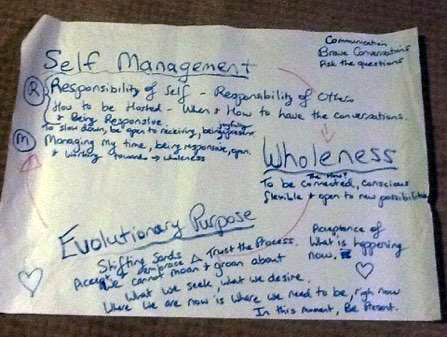 Communication
Brave Conversations
Ask the questions
Self Management
R Responsibility of Self - Responsibility of Others
How to be Hosted - When & How to have the conversations.
& Being Responsive.
To slow down, be open to receiving, being present.
M Managing my time, being responsive, open
& working towards → wholeness
Wholeness
To be connected, conscious
flexible & open to new possibilities
Evolutionary Purpose
Shifting Sands
Trust the Process.
We cannot moan & groan about
What we seek, what we desire.
Where we are now is where we need to be, right now
In this moment, Be Present.
Acceptance of
What is happening
now.